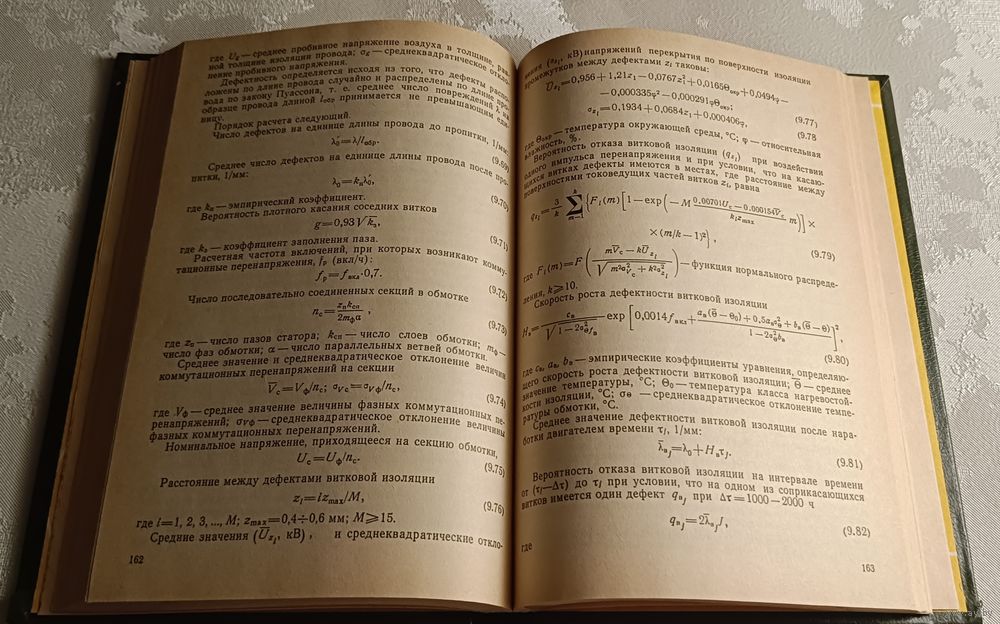 где U₈ — среднее пробивное напряжение воздуха в толщине, рав-
ной толщине изоляции провода; — среднеквадратическое откло-
нение пробивного напряжения.
Дефектность определяется исходя из того, что дефекты распо-
ложены по длине провода случайно и распределены по длине про-
вода по закону Пуассона, т. е. среднее число повреждений на
образце провода длиной lобр принимается не превышающим еди-
ницу.
Порядок расчета следующий.
Число дефектов на единице длины провода до пропитки, 1/мм:
λ₀′=λ/lобр. (9.69)
Среднее число дефектов на единице длины провода после про-
питки, 1/мм:
λ₀=kпλ₀′, (9.70)
где kп — эмпирический коэффициент.
Вероятность плотного касания соседних витков
g=0,93√kз, (9.71)
где kз — коэффициент заполнения паза.
Расчетная частота включений, при которых возникают комму-
тационные перенапряжения, fр (вкл/ч):
fр=fвкл·0,7. (9.72)
Число последовательно соединенных секций в обмотке
nс=zпkсл/2mфα , (9.73)
где zп — число пазов статора; kсл — число слоев обмотки; mф —
число фаз обмотки; α — число параллельных ветвей обмотки.
Среднее значение и среднеквадратическое отклонение величин
коммутационных перенапряжений на секции
V̅с=V̅ф/nс; σVс=σVф/nс, (9.74)
где V̅ф — среднее значение величины фазных коммутационных пе-
ренапряжений; σVф — среднеквадратическое отклонение величины
фазных коммутационных перенапряжений.
Номинальное напряжение, приходящееся на секцию обмотки,
Uс=Uф/nс. (9.75)
Расстояние между дефектами витковой изоляции
zl=lzmax/M, (9.76)
где l=1, 2, 3, ..., M; zmax=0,4÷0,6 мм; M⩾15.
Средние значения (U̅zl, кВ) , и среднеквадратические откло-
162
нения (σzl, кВ) напряжений перекрытия по поверхности изоляции
промежутков между дефектами zl таковы:
U̅zl=0,956+1,21zl−0,0767zl²+0,0165Θокр+0,0494φ−
−0,000335φ²−0,000291φΘокр;
σzl=0,1934+0,0684zl+0,000406φ, (9.77)
(9.78
где Θокр — температура окружающей среды, °С; φ — относительная
влажность, %.
Вероятность отказа витковой изоляции (qzl) при воздействии
одного импульса перенапряжения и при условии, что на касаю-
щихся витках дефекты имеются в местах, где расстояние между
поверхностями токоведущих частей витков zl, равна
qzl=3/k ∑ {Fl(m)[1−exp(−M (0,00701Uс−0,000154V̅с)/(klzmax) m)]×
×(m/k−1)²}, (9.79)
где Fl(m)=F((mV̅с−kU̅zl)/√(m²σ²Vс+k²σ²zl)) — функция нормального распреде-
ления, k⩾10.
Скорость роста дефектности витковой изоляции
Hв=cв/√(1−2σ²Θbв) exp[0,0014fвкл+(aв(Θ̅−Θ₀)+0,5aв²σ²Θ+bв(Θ̅−Θ)²)/(1−2σ²Θbв)], (9.80)
где cв, aв, bв — эмпирические коэффициенты уравнения, определяю-
щего скорость роста дефектности витковой изоляции; Θ̅ — среднее
значение температуры, °С; Θ₀ — температура класса нагревостой-
кости изоляции, °С; σΘ — среднеквадратическое отклонение темпе-
ратуры обмотки, °С.
Среднее значение дефектности витковой изоляции после нара-
ботки двигателем времени τj, 1/мм:
λ̅вj=λ₀+Hвτj. (9.81)
Вероятность отказа витковой изоляции на интервале времени
от (τj−Δτ) до τj при условии, что на одном из соприкасающихся
витков имеется один дефект qвj при Δτ=1000−2000 ч
qвj=2λ̅вjJ, (9.82)
где
163